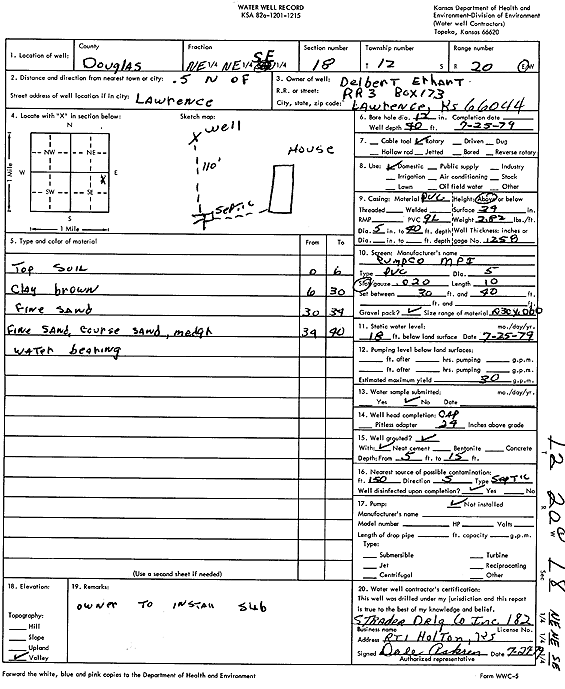 WATER WELL RECORD
KSA 82a-1201-1215
Kansas Department of Health and
Environment-Division of Environment
(Water well Contractors)
Topeka, Kansas 66620
1. Location of well:
County
Douglas
Fraction
NE 1/4 NE 1/4 SE 1/4
Section number
18
Township number
T 12 S
Range number
R 20 E/W
2. Distance and direction from nearest town or city: .5 N OF
Street address of well location if in city: LAWRENCE
3. Owner of well: Delbert Erhart
R.R. or street: RR3 Box 173
City, state, zip code: LAWRENCE, KS 66044
4. Locate with "X" in section below:
N
NW NE
W E
X
SW SE
S
1 Mile
1 Mile
Sketch map:
X well
110'
HOUSE
Septic
5. Type and color of material From To
Top Soil 0 6
Clay brown 6 30
Fine sand 30 34
Fine sand, course sand, 34 40
water bearing
(Use a second sheet if needed)
6. Bore hole dia. 12 in. Completion date
Well depth 40 ft. 7-25-79
7. Cable tool ✓ Rotary Driven Dug
Hollow rod Jetted Bored Reverse rotary
8. Use: ✓ Domestic Public supply Industry
Irrigation Air conditioning Stock
Lawn Oil field water Other
9. Casing: Material PVC Height: Above or below
Threaded Welded Surface 24 in.
RMP PVC GL Weight 2.82 lbs./ft.
Dia. 5 in. to 40 ft. depth Wall Thickness: inches or
Dia. in. to ft. depth gage No. .258
10. Screen: Manufacturer's name
PUMPCO MPI
Type PVC Dia. 5
Slot/gauze .020 Length 10
Set between 30 ft. and 40 ft.
ft. and ft.
Gravel pack? ✓ Size range of material
11. Static water level: mo./day/yr.
18 ft. below land surface Date 7-25-79
12. Pumping level below land surfaces:
ft. after hrs. pumping g.p.m.
ft. after hrs. pumping g.p.m.
Estimated maximum yield 30 g.p.m.
13. Water sample submitted: mo./day/yr.
Yes ✓ No Date
14. Well head completion: CAP
Pitless adapter 24 Inches above grade
15. Well grouted? ✓
With: ✓ Neat cement Bentonite Concrete
Depth: From 5 ft. to 15 ft.
16. Nearest source of possible contamination:
ft. 150 Direction S Type Septic
Well disinfected upon completion? ✓ Yes No
17. Pump: ✓ Not installed
Manufacturer's name
Model number HP Volts
Length of drop pipe ft. capacity g.p.m.
Type:
Submersible Turbine
Jet Reciprocating
Centrifugal Other
18. Elevation:
Topography:
Hill
Slope
Upland
✓ Valley
19. Remarks:
OWNER TO INSTALL SUB
20. Water well contractor's certification:
This well was drilled under my jurisdiction and this report
is true to the best of my knowledge and belief.
STRADER Drlg Co Inc. 182
Business name License No.
Address RT1 HOLTON, KS
Signed Dale Date
Authorized representative
Forward the white, blue and pink copies to the Department of Health and Environment
Form WWC-5
T 12
R 20E W
Sec 18
1/4 1/4 1/4 NE NE SE